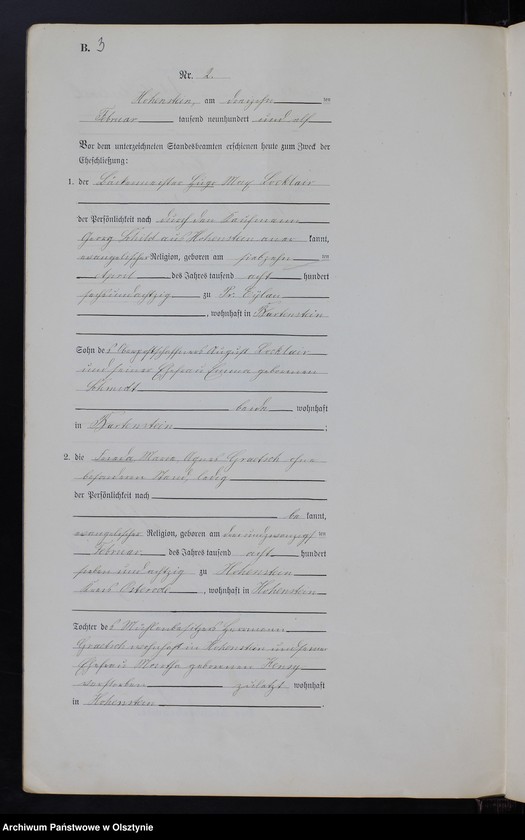 B. 3
Nr. 2.
Hohenstein, am dreizehn ten
Februar tausend neunhundert und elf
Vor dem unterzeichneten Standesbeamten erschienen heute zum Zweck der
Eheschließung:
1. der Max
der Persönlichkeit nach durch den Kaufmann
Georg aus Hohenstein aner kannt,
evangelischer Religion, geboren am siebzehn ten
April des Jahres tausend acht hundert
sechsundachtzig zu Pr. Eylau
, wohnhaft in Bartenstein
Sohn des August
und seiner Ehefrau Emma geborenen
beide wohnhaft
in Bartenstein ;
2. die Maria Agnes Graetsch ohne
besonderen Stand, ledig
der Persönlichkeit nach
be kannt,
evangelischer Religion, geboren am dreiundzwanzigs ten
Februar des Jahres tausend acht hundert
siebenundachtzig zu Hohenstein
Kreis Osterode , wohnhaft in Hohenstein
Tochter des Mühlenbesitzers Herrmann
Graetsch wohnhaft in Hohenstein und seiner
Ehefrau geborenen
verstorben zuletzt wohnhaft
in Hohenstein .
Archiwum Państwowe w Olsztynie